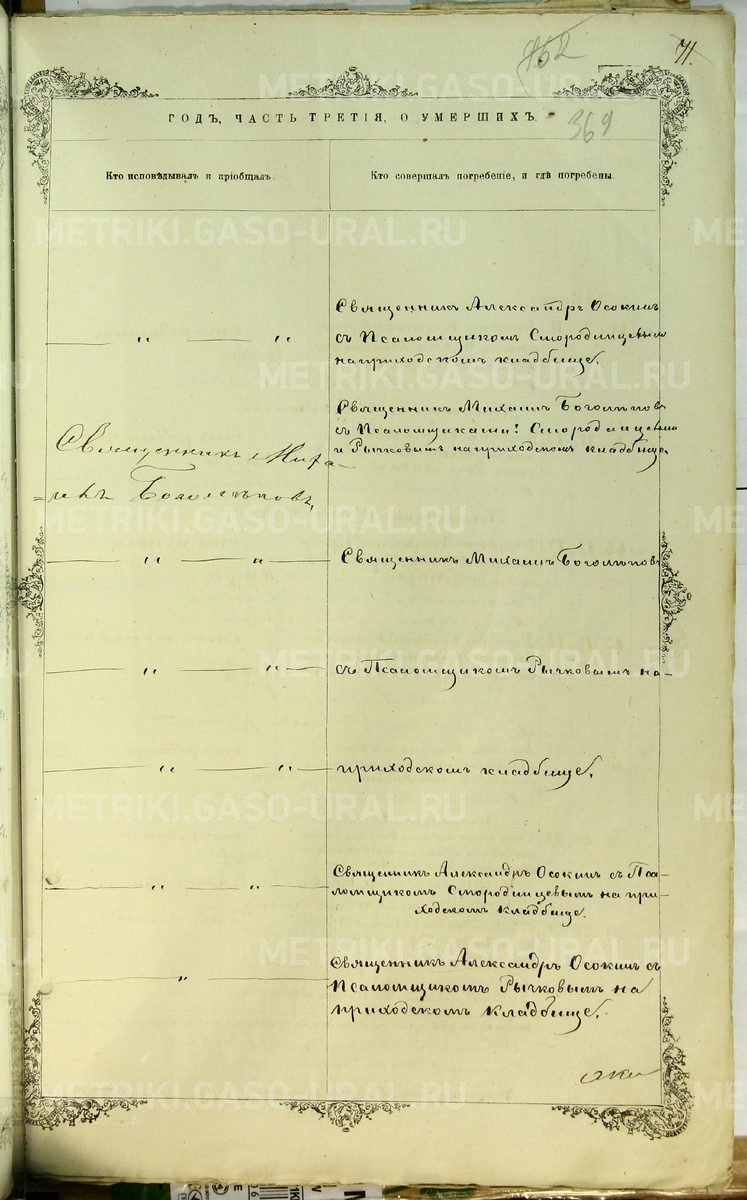 362
71.
369
ГОДЪ, ЧАСТЬ ТРЕТІЯ, О УМЕРШИХЪ.
Кто исповѣдывалъ и пріобщалъ.
Кто совершалъ погребеніе, и гдѣ погребены.
Священникъ Александръ Осокинъ
съ Псаломщикомъ Смородинцевымъ
на приходскомъ кладбище.
Священникъ Миха-
илъ Боголѣповъ,
Священникъ Михаилъ Боголѣповъ
съ Псаломщиками: Смородинцевымъ
и Рычковымъ на приходскомъ кладбище
Священникъ Михаилъ Боголѣповъ
съ Псаломщикомъ Рычковымъ на-
приходскомъ кладбище.
Священникъ Александръ Осокинъ съ Пса-
ломщикомъ Смородинцевымъ на при-
ходскомъ кладбище.
Священникъ Александръ Осокинъ съ
Псаломщикомъ Рычковымъ на
приходскомъ кладбище.
METRIKI.GASO-URAL.RU